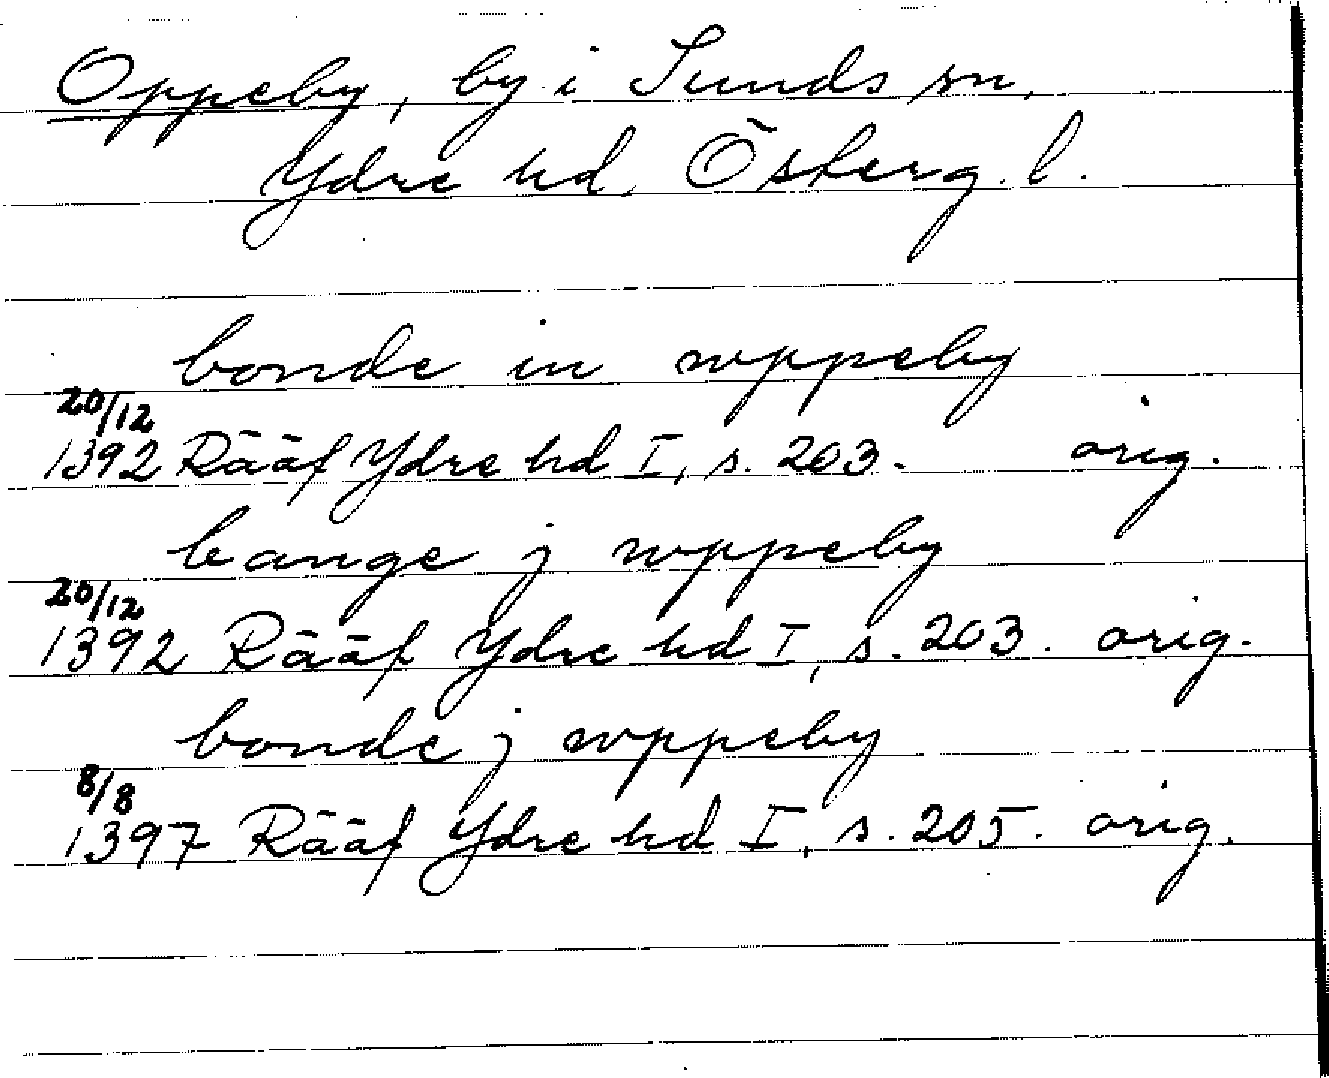 Oppeby, by i Sunds sn,
Ydre hd, Österg. l.
bonde in wppeby
20/12
1392 Rääf Ydre hd I, s. 203. orig.
bange j wppeby
20/12
1392 Rääf Ydre hd I, s. 203. orig.
bonde j wppeby
8/8
1397 Rääf Ydre hd I, s. 205. orig.